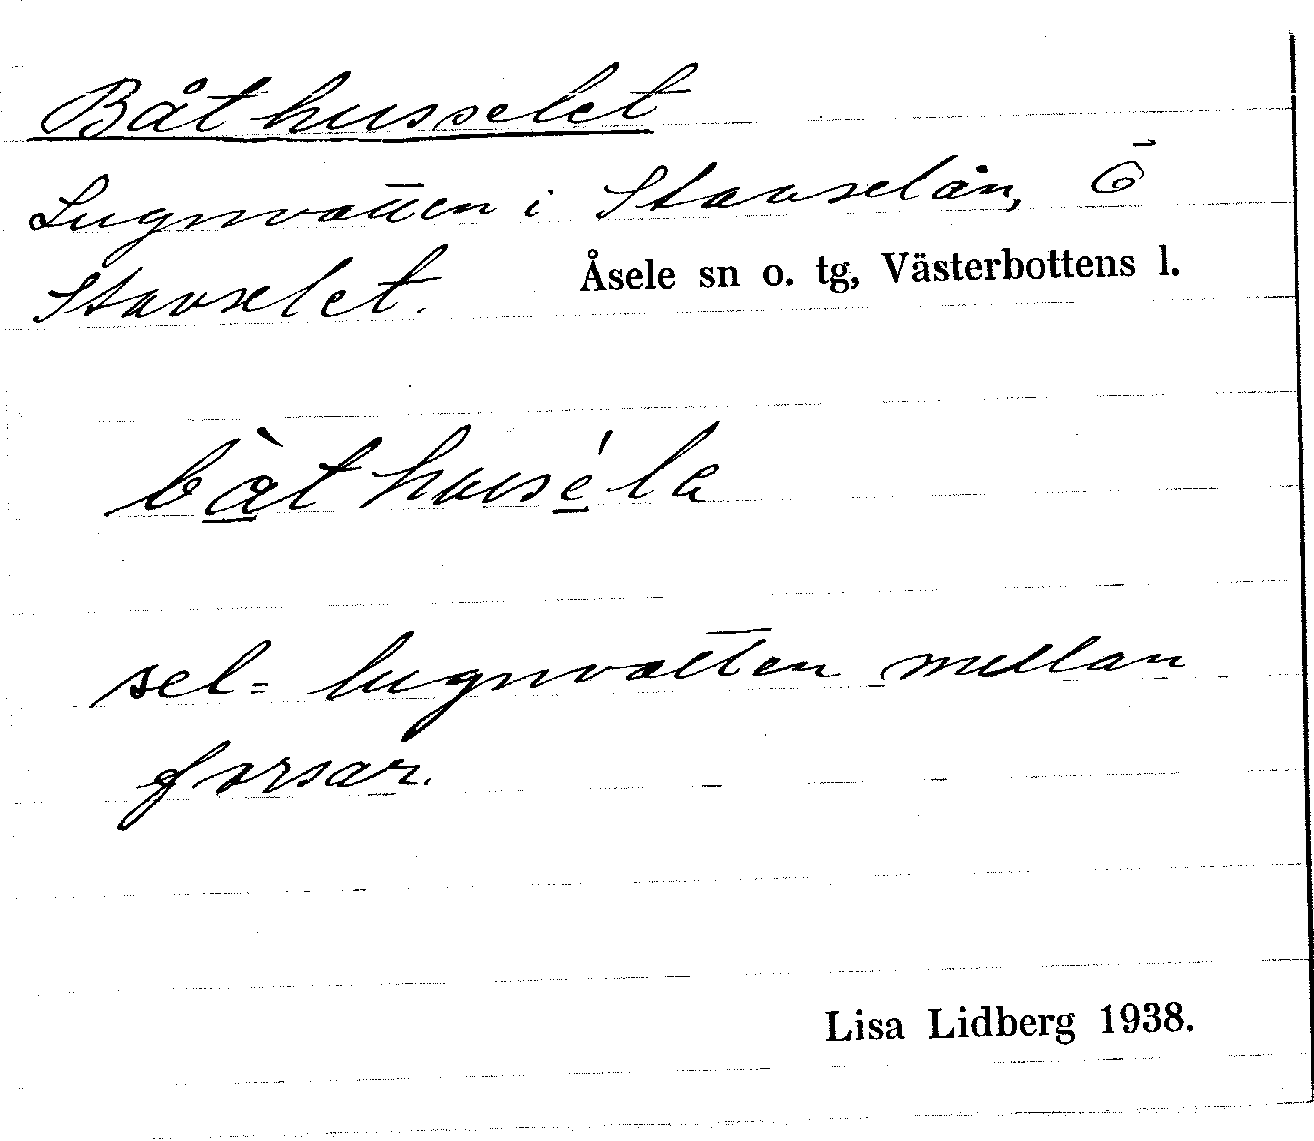 Båthusselet
Lugnvatten i Stavselån, Ö
Stavselet. Åsele sn o. tg, Västerbottens l.
bàthusé́la
sel = lugnvatten mellan
forsar.
Lisa Lidberg 1938.